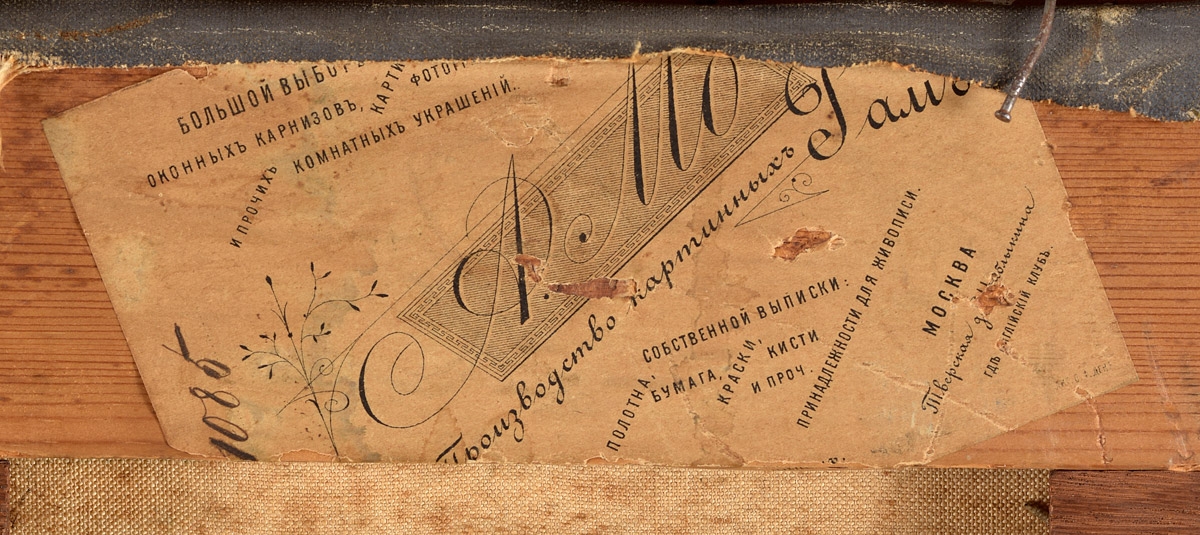 БОЛЬШОЙ ВЫБОРЪ
ОКОННЫХЪ КАРНИЗОВЪ, КАРТИ
ФОТОГ
И ПРОЧИХЪ КОМНАТНЫХЪ УКРАШЕНІЙ.
А. МО
Производство картинныхъ Рамъ
СОБСТВЕННОЙ ВЫПИСКИ:
ПОЛОТНА, БУМАГА, КРАСКИ, КИСТИ
И ПРОЧ.
ПРИНАДЛЕЖНОСТИ ДЛЯ ЖИВОПИСИ.
МОСКВА
Тверская д.
ГДѢ КЛУБЪ.
1085